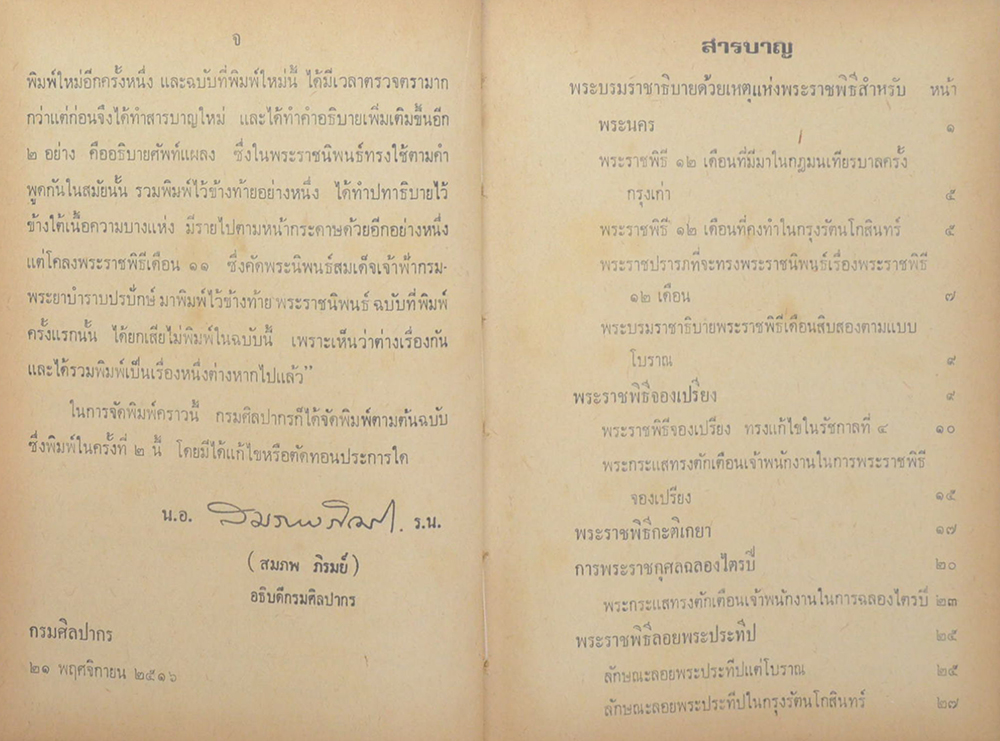 จ
พิมพ์ใหม่อีกครั้งหนึ่ง และฉบับที่พิมพ์ใหม่นี้ ได้มีเวลาตรวจตรามาก
กว่าแต่ก่อนจึงได้ทำสารบาญใหม่ และได้ทำคำอธิบายเพิ่มเติมขึ้นอีก
๒ อย่าง คืออธิบายศัพท์แผลง ซึ่งในพระราชนิพนธ์ทรงใช้ตามคำ
พูดกันในสมัยนั้น รวมพิมพ์ไว้ข้างท้ายอย่างหนึ่ง ได้ทำปทาธิบายไว้
ข้างใต้เนื้อความบางแห่ง มีรายไปตามหน้ากระดาษด้วยอีกอย่างหนึ่ง
แต่โคลงพระราชพิธีเดือน ๑๑ ซึ่งคัดพระนิพนธ์สมเด็จเจ้าฟ้ากรม-
พระยาบำราบปรปักษ์ มาพิมพ์ไว้ข้างท้ายพระราชนิพนธ์ ฉบับที่พิมพ์
ครั้งแรกนั้น ได้ยกเสียไม่พิมพ์ในฉบับนี้ เพราะเห็นว่าต่างเรื่องกัน
และได้รวมพิมพ์เป็นเรื่องหนึ่งต่างหากไปแล้ว”
ในการจัดพิมพ์คราวนี้ กรมศิลปากรก็ได้จัดพิมพ์ตามต้นฉบับ
ซึ่งพิมพ์ในครั้งที่ ๒ นี้ โดยมิได้แก้ไขหรือตัดทอนประการใด
น.อ. สมภพ ภิรมย์ ร.น.
(สมภพ ภิรมย์)
อธิบดีกรมศิลปากร
กรมศิลปากร
๒๑ พฤศจิกายน ๒๕๑๖
สารบาญ
พระบรมราชาธิบายด้วยเหตุแห่งพระราชพิธีสำหรับ หน้า
พระนคร ๑
พระราชพิธี ๑๒ เดือนที่มีมาในกฎมนเทียรบาลครั้ง
กรุงเก่า ๕
พระราชพิธี ๑๒ เดือนที่คงทำในกรุงรัตนโกสินทร์ ๕
พระราชปรารภที่จะทรงพระราชนิพนธ์เรื่องพระราชพิธี
๑๒ เดือน ๗
พระบรมราชาธิบายพระราชพิธีเดือนสิบสองตามแบบ
โบราณ ๙
พระราชพิธีจองเปรียง ๙
พระราชพิธีจองเปรียง ทรงแก้ไขในรัชกาลที่ ๔ ๑๐
พระกระแสทรงตักเตือนเจ้าพนักงานในการพระราชพิธี
จองเปรียง ๑๕
พระราชพิธีกะติเกยา ๑๗
การพระราชกุศลฉลองไตรปี ๒๐
พระกระแสทรงตักเตือนเจ้าพนักงานในการฉลองไตรปี ๒๓
พระราชพิธีลอยพระประทีป ๒๕
ลักษณะลอยพระประทีปแต่โบราณ ๒๕
ลักษณะลอยพระประทีปในกรุงรัตนโกสินทร์ ๒๗